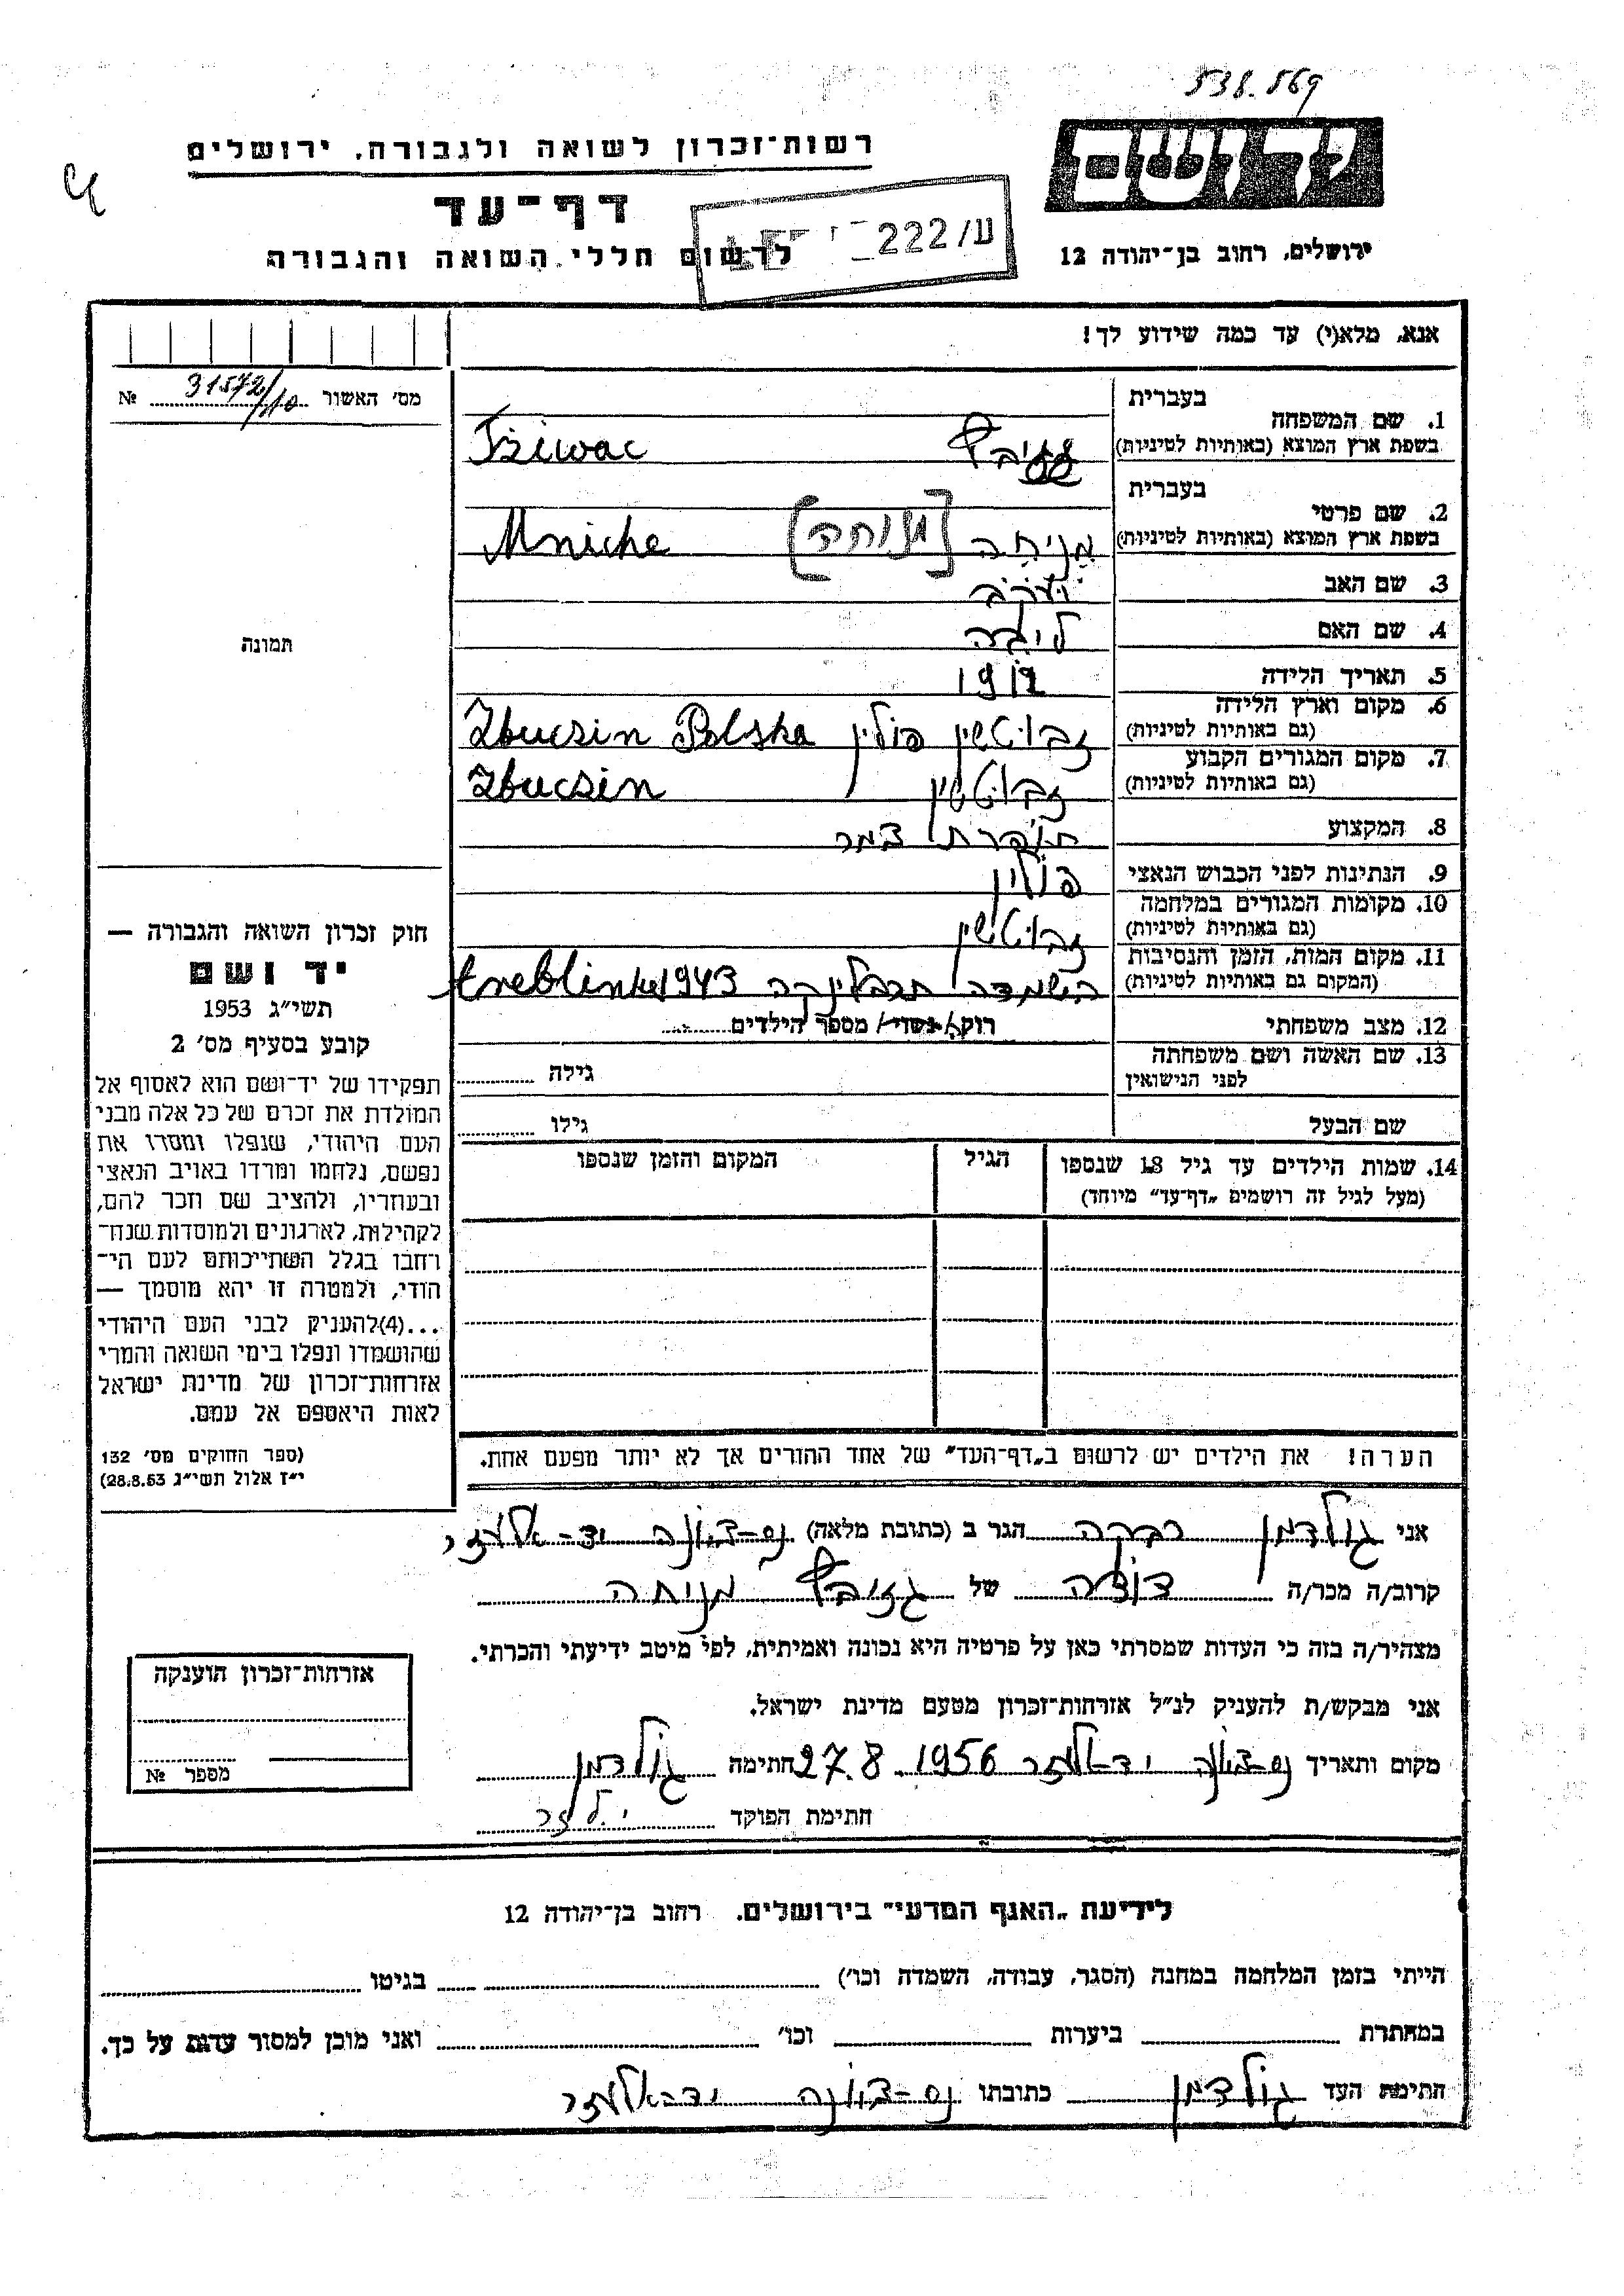 538.569
רשות־זכרון לשואה ולגבורה, ירושלים
דף־עד
לרשום חללי השואה והגבורה
ע/222
יד ושם
ירושלים, רחוב בן־יהודה 12
אנא, מלא(י) עד כמה שידוע לך!
מס' האשור 31572/ №
1. שם המשפחה
בעברית
בשפת ארץ המוצא (באותיות לטיניות)
2. שם פרטי
בעברית
בשפת ארץ המוצא (באותיות לטיניות) מניחה [מנוחה] Mniche
3. שם האב יעקב
4. שם האם
5. תאריך הלידה 1912
6. מקום וארץ הלידה
(גם באותיות לטיניות) זבוטשין פולין Zbuczin Polska
7. מקום המגורים הקבוע
(גם באותיות לטיניות) זבוטשין Zbuczin
8. המקצוע צמר
9. הנתינות לפני הכבוש הנאצי פולין
10. מקומות המגורים במלחמה
(גם באותיות לטיניות) זבוטשין
11. מקום המות, הזמן והנסיבות
(המקום גם באותיות לטיניות) השמדה תרבלינקה 1943 treblinka
12. מצב משפחתי רוק/ נשוי/ מספר הילדים
13. שם האשה ושם משפחתה
לפני הנישואין גילה
שם הבעל גילו
14. שמות הילדים עד גיל 18 שנספו
(מעל לגיל זה רושמים „דף־עד" מיוחד)
הגיל
המקום והזמן שנספו
הערה! את הילדים יש לרשום ב„דף־העד" של אחד ההורים אך לא יותר מפעם אחת.
תמונה
חוק זכרון השואה והגבורה —
יד ושם
תשי"ג 1953
קובע בסעיף מס' 2
תפקידו של יד־ושם הוא לאסוף אל
המולדת את זכרם של כל אלה מבני
העם היהודי, שנפלו ומסרו את
נפשם, נלחמו ומרדו באויב הנאצי
ובעוזריו, ולהציב שם וזכר להם,
לקהילות, לארגונים ולמוסדות שנח־
רחבו בגלל השתייכותם לעם הי־
הודי, ולמטרה זו יהא מוסמך —
...(4) להעניק לבני העם היהודי
שהושמדו ונפלו בימי השואה והמרי
אזרחות־זכרון של מדינת ישראל
לאות היאספם אל עמם.
(ספר החוקים מס' 132
י"ז אלול תשי"ג 28.8.53)
אני גולדמן רבקה הגר ב (כתובת מלאה) נס-ציונה יד-אליעזר
קרוב/ה מכר/ה דודה של מניחה
מצהיר/ה בזה כי העדות שמסרתי כאן על פרטיה היא נכונה ואמיתית, לפי מיטב ידיעתי והכרתי.
אני מבקש/ת להעניק לנ"ל אזרחות־זכרון מטעם מדינת ישראל.
מקום ותאריך נס-ציונה יד-אליעזר 27.8.1956 חתימה גולדמן
חתימת הפוקד
אזרחות־זכרון הוענקה
מספר №
לידיעת „האגף המדעי" בירושלים, רחוב בן־יהודה 12
הייתי בזמן המלחמה במחנה (הסגר, עבודה, השמדה וכו') בגיטו
במחתרת ביערות וכו' ואני מוכן למסור עדות על כך.
חתימת העד גולדמן כתובתו נס-ציונה יד-אליעזר